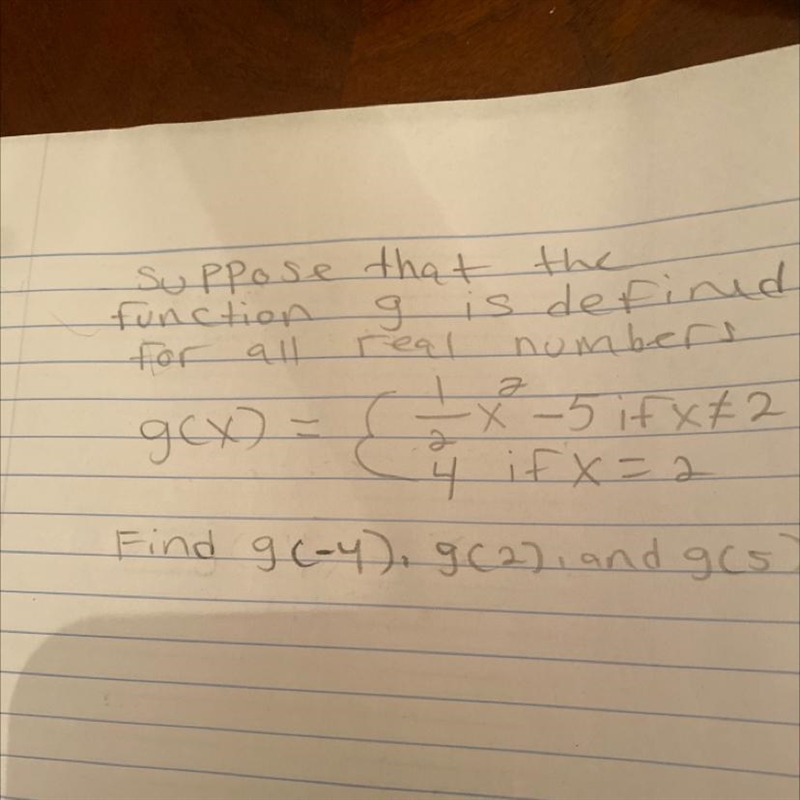 suppose that the
function g is defined
for all real numbers
g(x) = { 1/2 x² - 5 if x ≠ 2
4 if x = 2
Find g(-4), g(2), and g(5)